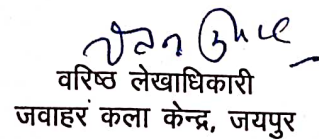 वरिष्ठ लेखाधिकारी
जवाहर कला केन्द्र, जयपुर